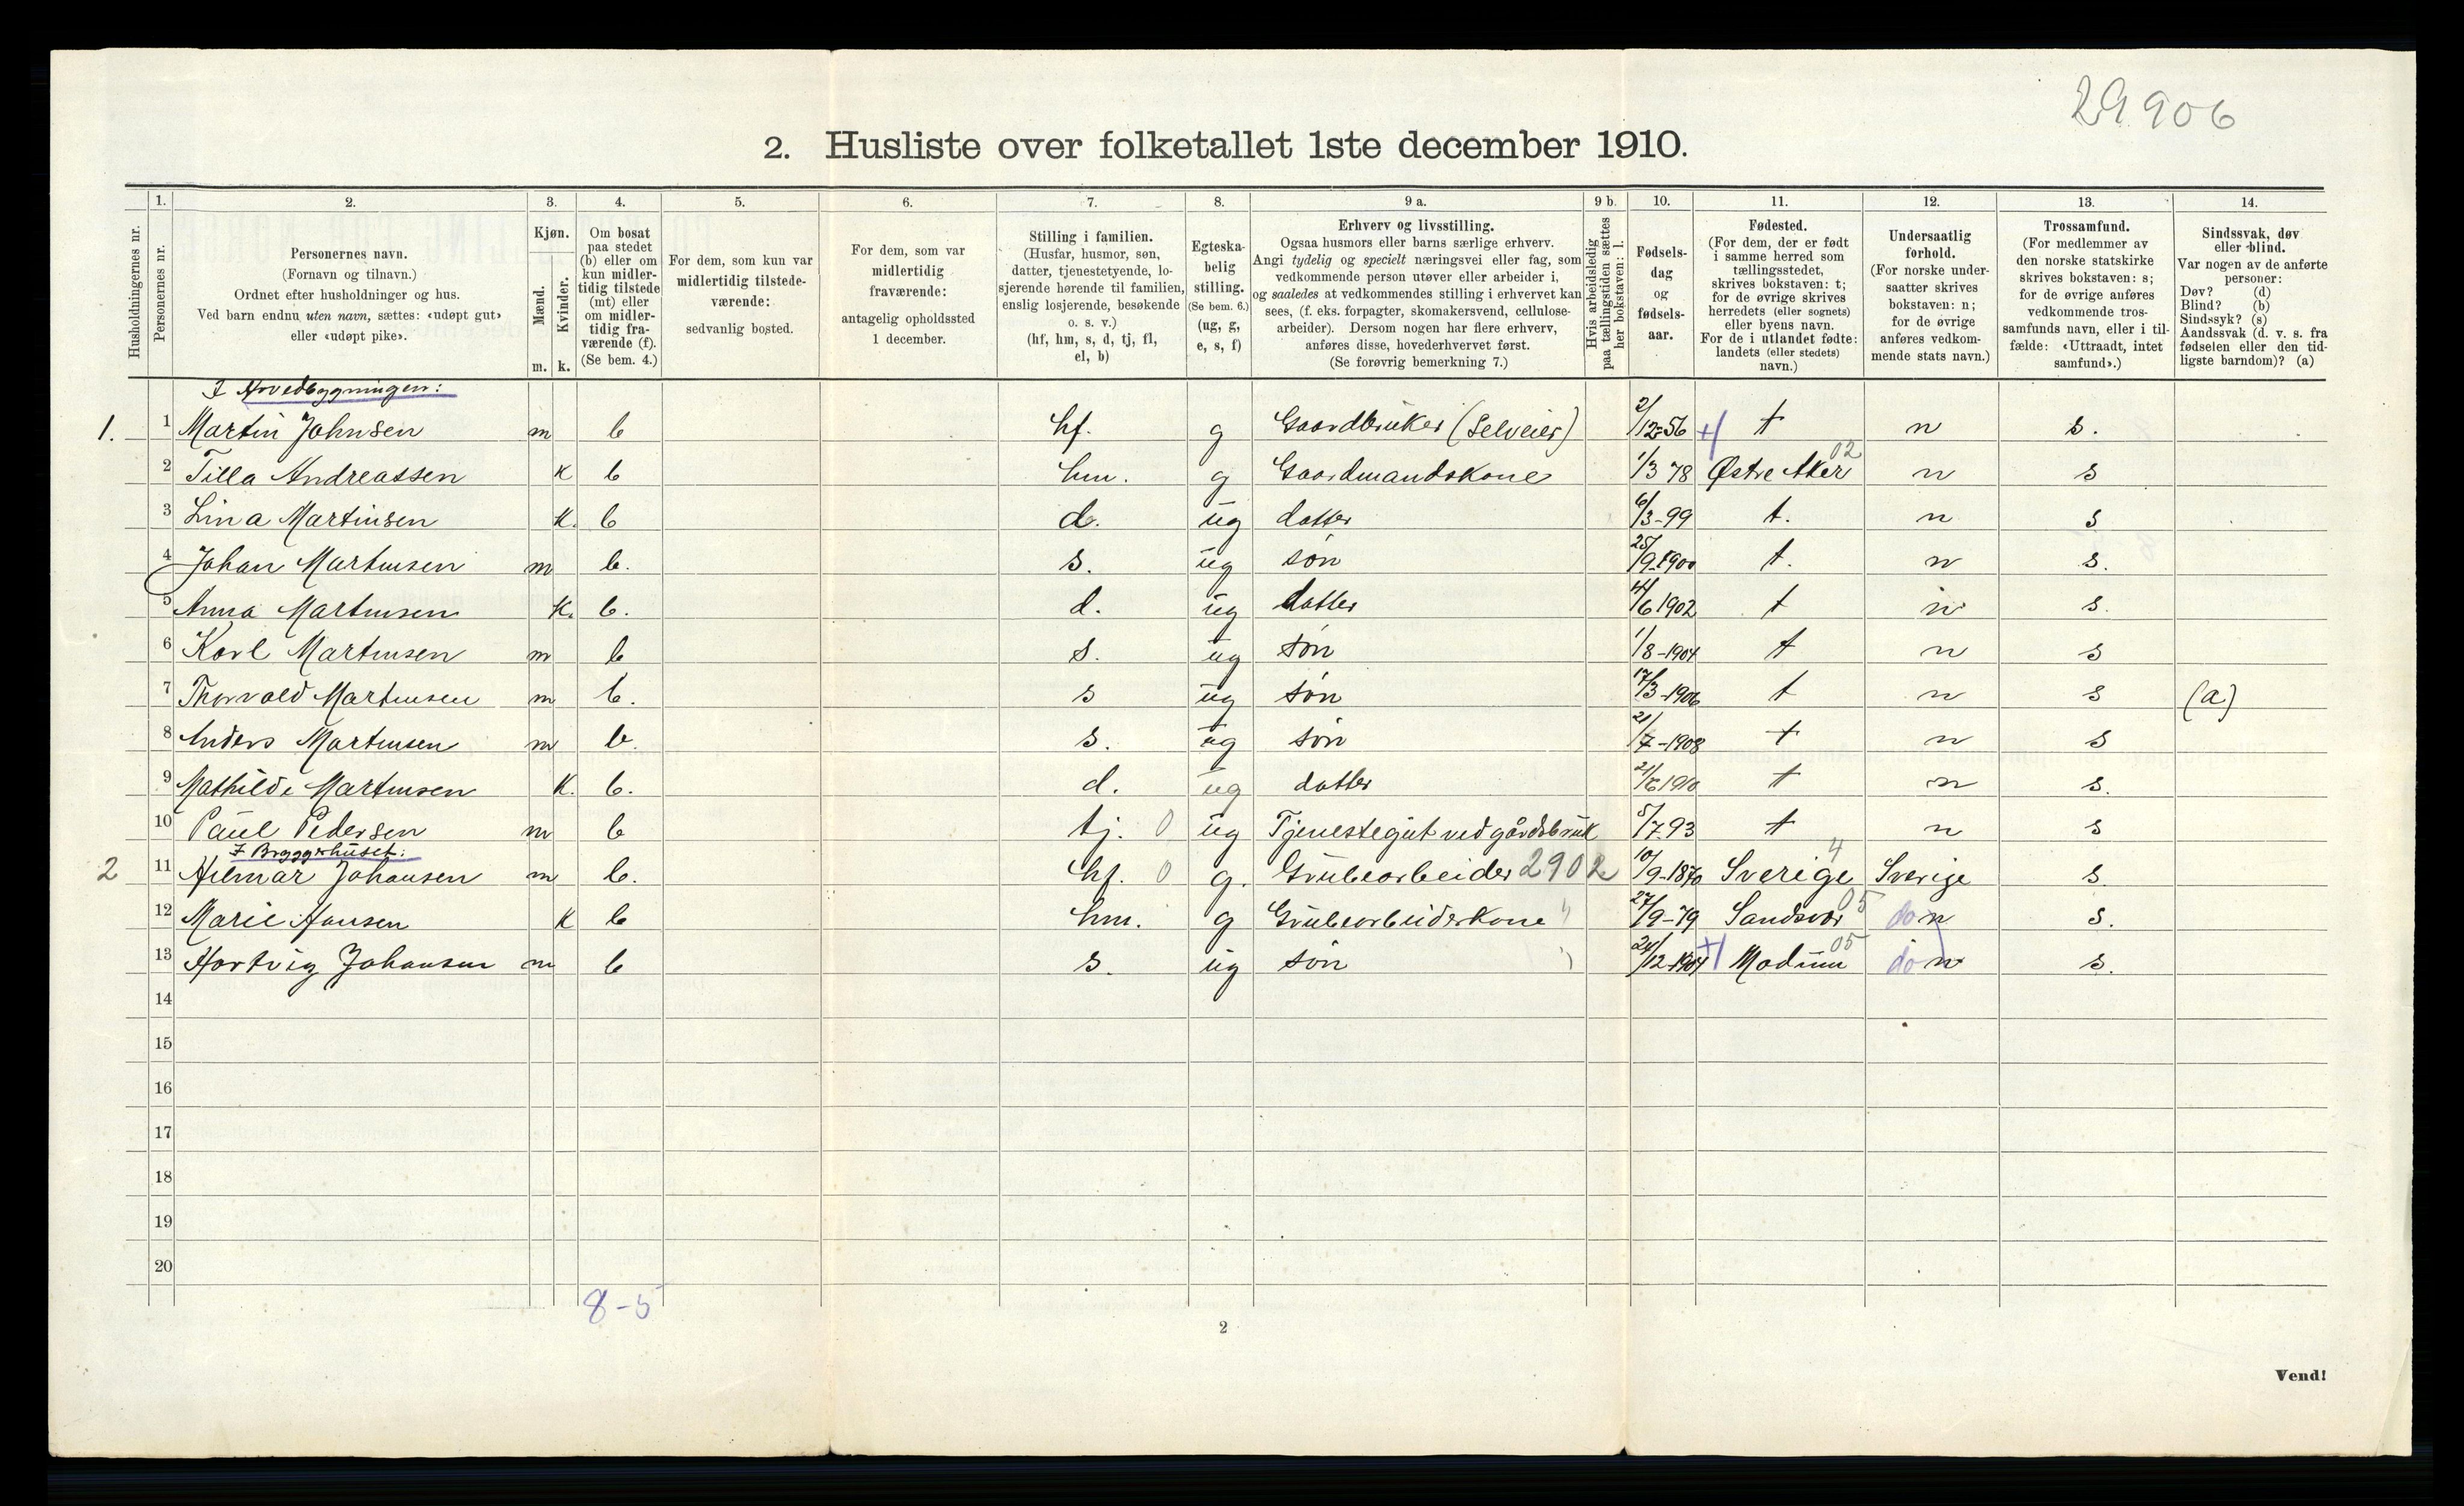 29906
2. Husliste over folketallet 1ste december 1910.
1. 2. 3. 4. 5. 6. 7. 8. 9 a. 9 b. 10. 11. 12. 13. 14.
Husholdningernes nr.
Personernes nr.
Personernes navn.
(Fornavn og tilnavn.)
Ordnet efter husholdninger og hus.
Ved barn endnu uten navn, sættes: «udøpt gut»
eller «udøpt pike».
Kjøn.
Mænd.
Kvinder.
m. k.
Om bosat
paa stedet
(b) eller om
kun midler-
tidig tilstede
(mt) eller
om midler-
tidig fra-
værende (f).
(Se bem. 4.)
For dem, som kun var
midlertidig tilstede-
værende:
sedvanlig bosted.
For dem, som var
midlertidig
fraværende:
antagelig opholdssted
1 december.
Stilling i familien.
(Husfar, husmor, søn,
datter, tjenestetyende, lo-
sjerende hørende til familien,
enslig losjerende, besøkende
o. s. v.)
(hf, hm, s, d, tj, fl,
el, b)
Egteska-
belig
stilling.
(Se bem. 6.)
(ug, g,
e, s, f)
Erhverv og livsstilling.
Ogsaa husmors eller barns særlige erhverv.
Angi tydelig og specielt næringsvei eller fag, som
vedkommende person utøver eller arbeider i,
og saaledes at vedkommendes stilling i erhvervet kan
sees, (f. eks. forpagter, skomakersvend, cellulose-
arbeider). Dersom nogen har flere erhverv,
anføres disse, hovederhvervet først.
(Se forøvrig bemerkning 7.)
Hvis arbeidsledig
paa tællingstiden sættes
her bokstaven: l.
Fødsels-
dag
og
fødsels-
aar.
Fødested.
(For dem, der er født
i samme herred som
tællingsstedet,
skrives bokstaven: t;
for de øvrige skrives
herredets (eller sognets)
eller byens navn.
For de i utlandet fødte:
landets (eller stedets)
navn.)
Undersaatlig
forhold.
(For norske under-
saatter skrives
bokstaven: n;
for de øvrige
anføres vedkom-
mende stats navn.)
Trossamfund.
(For medlemmer av
den norske statskirke
skrives bokstaven: s;
for de øvrige anføres
vedkommende tros-
samfunds navn, eller i til-
fælde: «Uttraadt, intet
samfund».)
Sindssvak, døv
eller blind.
Var nogen av de anførte
personer:
Døv? (d)
Blind? (b)
Sindssyk? (s)
Aandssvak (d. v. s. fra
fødselen eller den tid-
ligste barndom)? (a)
I Hovedbygningen:
1. 1 Martin Johnsen m b hf. g Gaardbruker (Selveier) 2/12-56 t n s.
2 Tilla Andreassen k b hm. g Gaardmandskone 1/3 78 Østre Aker 02 n s
3 Lina Martinsen k. b d. ug datter 6/3-99 t. n s
4 Johan Martinsen m b. s. ug søn 25/9-1900 t. n s.
5 Anna Martinsen k. b. d. ug datter 14/6 1902 t n s.
6 Karl Martinsen m b s. ug søn 1/8-1904 t n s
7 Thorvald Martinsen m b. s ug søn 17/3-1906 t n s (a)
8 Anders Martinsen m b. s. ug søn 21/7-1908 t n s
9 Mathilde Martinsen k. b. d. ug datter 21/6 1910 t n s.
10 Paul Pedersen m b tj. 0 ug Tjenestegut ved gårdsbruk 5/7.93 t n s
I Bryggerhuset:
2 11 Hilmar Johansen m b. hf. 0 g. Grubearbeider 2902 10/9-1870 Sverige 4 Sverige s.
12 Marie Hansen k b hm. g Grubearbeiderkone " 27/9-79 Sandsvær 05 do n s.
13 Hartvig Johansen m b s. ug søn 24/12-1904 Modum 05 do n s.
14
15
16
17
18
19
20
8-5
2
Vend!